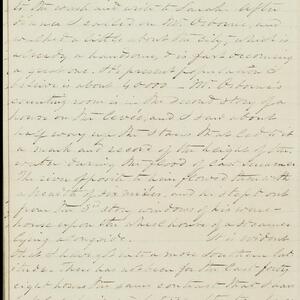 to the wash and write to Sarah. After
I called on Mr. Osborne, and
walked a little about the city, which is
already a handsome, & is fast becoming
a great one. Its present population I
believe is about 40000 — Mr. Osborne's
counting room is in the second story of a
house on the Levee, and I saw about
half way up the stairs that led to it
a mark and record of the height of the
water during the flood of last summer.
The river opposite to him flowed then with
a breadth of six miles, and he stepped out
from the 2d story windows of his ware-
house upon the wheel house of a steamer
lying alongside. It is evident
that I have got into a more southern lati-
tude. There has not been for the last forty
eight hours the same contrast that I saw